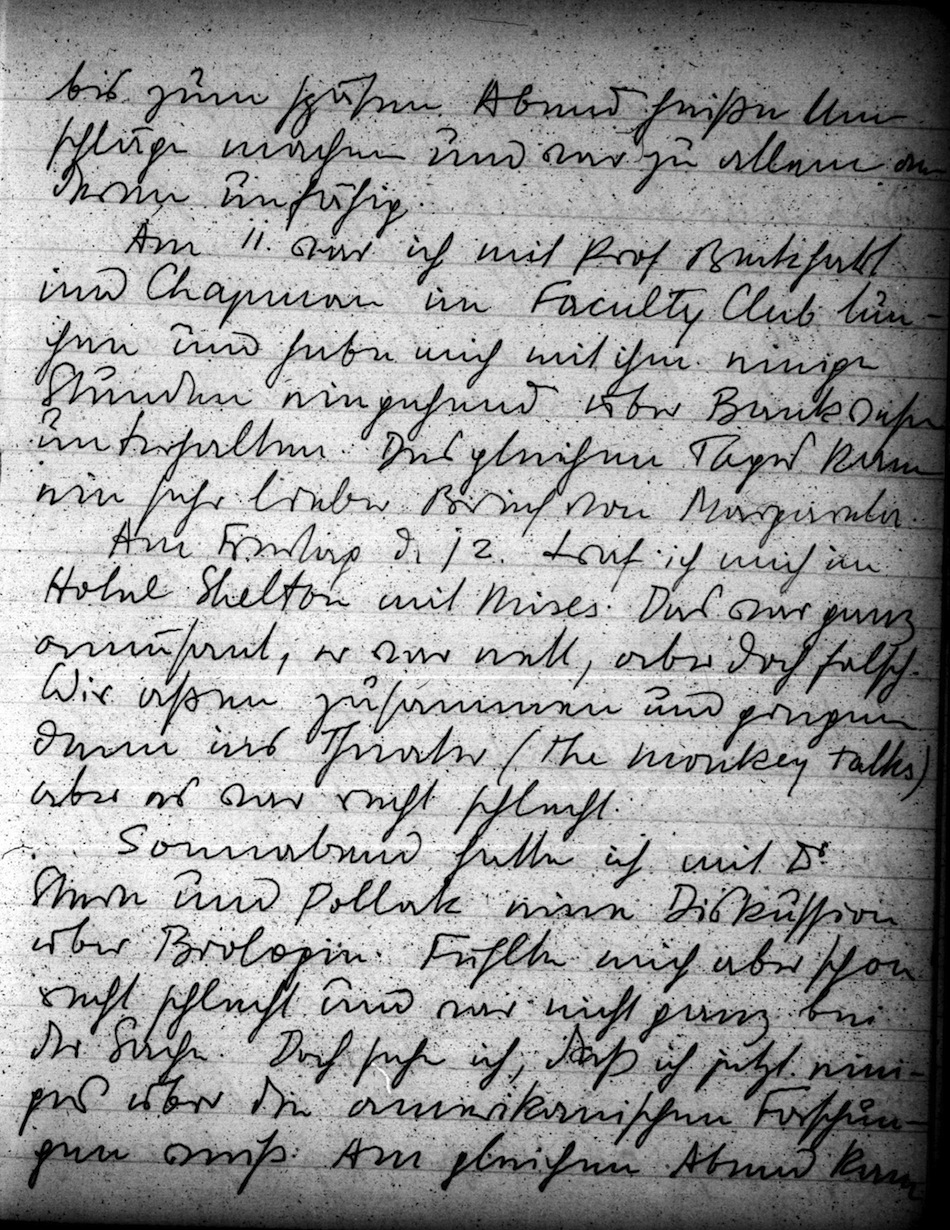 bis zum späten Abend heiße Um-
schläge machen und war zu allem an-
deren unfähig.
Am 11. war ich mit Prof Burkhardt
und Chapman im Faculty Club lun-
chen und habe mich mit ihm einige
Stunden eingehend über Bankwesen
unterhalten. Des gleichen Tages kam
ein sehr lieber Brief von Margareta.
Am Freitag d. 12. traf ich mich im
Hotel Shelton mit Mises. Das war ganz
amüsant, er war nett, aber doch falsch.
Wir aßen zusammen und gingen
dann ins Theater (The monkey talks)
aber es war recht schlecht.
Sonnabend hatte ich mit Dr
Stern und Pollak eine Diskussion
über Biologie. Fühlte mich aber schon
recht schlecht und war nicht ganz bei
der Sache. Doch sehe ich, daß ich jetzt eini-
ges über die amerikanischen Forschun-
gen weiß. Am gleichen Abend kam